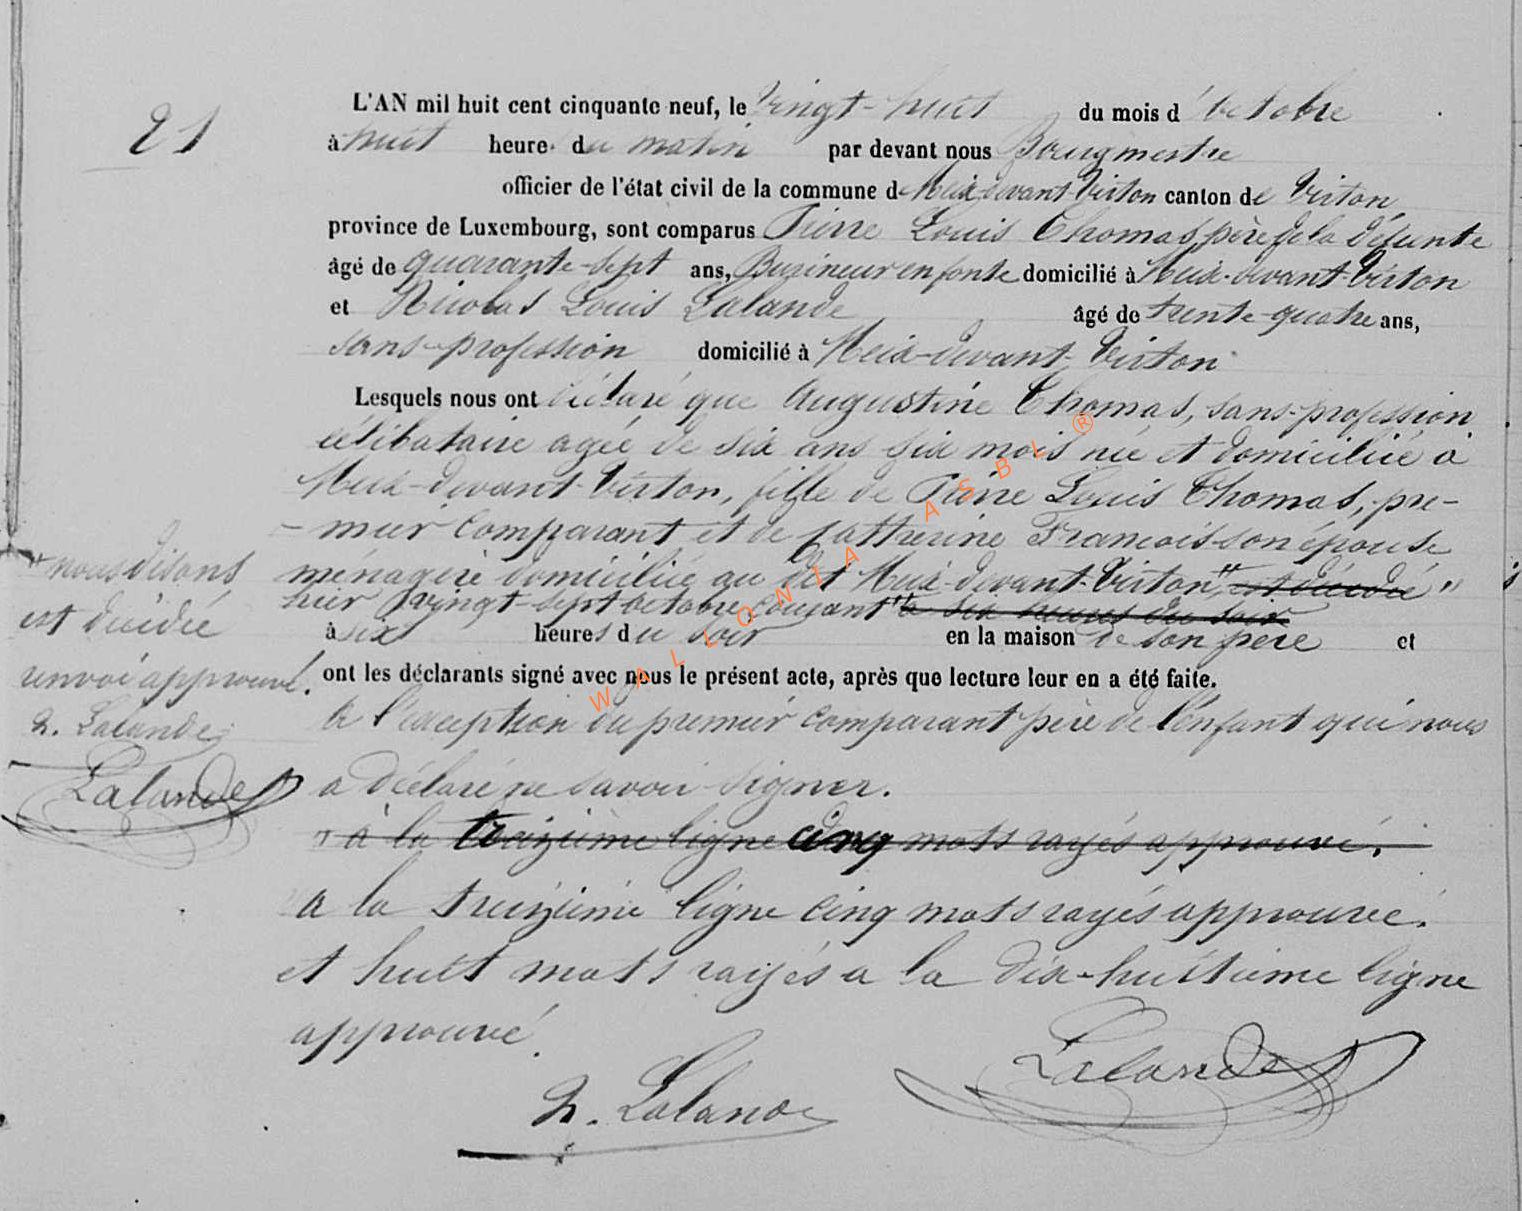 21
L'AN mil huit cent cinquante neuf, le vingt-huit du mois d'octobre
à huit heure du matin par devant nous Bourgmestre
officier de l'état civil de la commune de Meix-devant-Virton canton de Virton
province de Luxembourg, sont comparus Pierre Louis Thomas, père de la défunte
âgé de quarante-sept ans, Burineur en fonte domicilié à Meix-devant-Virton
et Nicolas Louis Lalande âgé de trente-quatre ans,
sans-profession domicilié à Meix-devant-Virton
Lesquels nous ont déclaré que Augustine Thomas, sans-profession
célibataire agée de six ans six mois née et domiciliée à
Meix-devant-Virton, fille de Pierre Louis Thomas, pre-
-mier comparant et de Catherine Francois son épouse
ménagère domiciliée au dit Meix-devant-Virton, " est décédée "
hier vingt-sept octobre courant " à six heures du soir
à six heures du soir en la maison de son père et
ont les déclarants signé avec nous le présent acte, après que lecture leur en a été faite.
à l'exception du premier comparant père de l'enfant qui nous
a déclaré ne savoir signer.
à la treizième ligne cinq mots rayés approuvé.
a la treizième ligne cinq mots rayés approuvé.
et huit mots rayés a la dix-huitième ligne
approuvé.
N. Lalande
Lalande
" nous disons
est décédée
renvoi approuvé.
N. Lalande
Lalande
WALLONIA ASBL ®